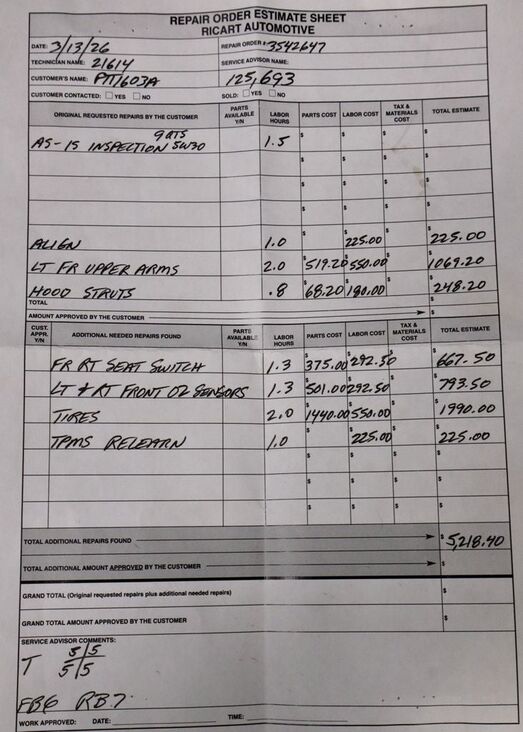 REPAIR ORDER ESTIMATE SHEET
RICART AUTOMOTIVE
DATE: 3/13/26 REPAIR ORDER # 3542647
TECHNICIAN NAME: 21614 SERVICE ADVISOR NAME:
CUSTOMER'S NAME: PTT1603A 125,693
CUSTOMER CONTACTED: YES NO SOLD: YES NO
ORIGINAL REQUESTED REPAIRS BY THE CUSTOMER PARTS AVAILABLE Y/N LABOR HOURS PARTS COST LABOR COST TAX & MATERIALS COST TOTAL ESTIMATE
9 QTS
AS-IS INSPECTION 5W30 1.5 $ $ $ $
$ $ $ $
$ $ $ $
$ $ $ $
ALIGN 1.0 $ $ 225.00 $ $ 225.00
LT FR UPPER ARMS 2.0 $ 519.20 $ 550.00 $ $ 1069.20
HOOD STRUTS .8 $ 68.20 $ 180.00 $ $ 248.20
TOTAL $
AMOUNT APPROVED BY THE CUSTOMER $
CUST. APPR. Y/N ADDITIONAL NEEDED REPAIRS FOUND PARTS AVAILABLE Y/N LABOR HOURS PARTS COST LABOR COST TAX & MATERIALS COST TOTAL ESTIMATE
FR RT SEAT SWITCH 1.3 $ 375.00 $ 292.50 $ $ 667.50
LT & RT FRONT O2 SENSORS 1.3 $ 501.00 $ 292.50 $ $ 793.50
TIRES 2.0 $ 1440.00 $ 550.00 $ $ 1990.00
TPMS RELEARN 1.0 $ $ 225.00 $ $ 225.00
$ $ $ $
$ $ $ $
$ $ $ $
TOTAL ADDITIONAL REPAIRS FOUND $ 5,218.40
TOTAL ADDITIONAL AMOUNT APPROVED BY THE CUSTOMER $
GRAND TOTAL (Original requested repairs plus additional needed repairs) $
GRAND TOTAL AMOUNT APPROVED BY THE CUSTOMER $
SERVICE ADVISOR COMMENTS:
T 5/5
5/5
FB6 RB7
WORK APPROVED: DATE: TIME: